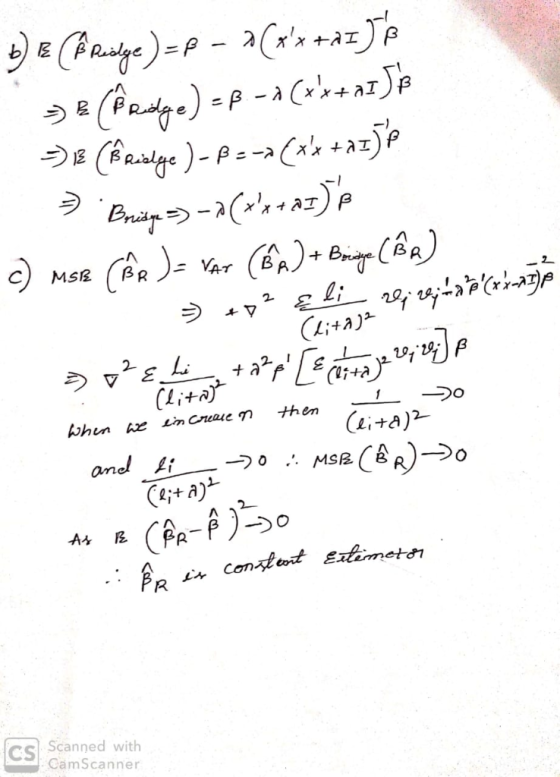 b) E (β̂ Ridge) = β - λ (x'x + λI)⁻¹ β
⇒ E (β̂ Ridge) = β - λ (x'x + λI)⁻¹ β
⇒ E (β̂ Ridge) - β = -λ (x'x + λI)⁻¹ β
⇒ Bridge ⇒ -λ (x'x + λI)⁻¹ β
c) MSE (β̂R) = Var (β̂R) + Bridge (β̂R)
⇒ + σ² Σ li/(li+λ)² vj vj' + λ² β' (x'x-λI)⁻² β
⇒ σ² Σ Li/(li+λ)² + λ² β' [Σ 1/(li+λ)² vj vj'] β
When we increase n then 1/(li+λ)² → 0
and li/(li+λ)² → 0 ∴ MSE (β̂R) → 0
As E (β̂R - β̂)² → 0
∴ β̂R is constent Estimator
CS Scanned with
CamScanner